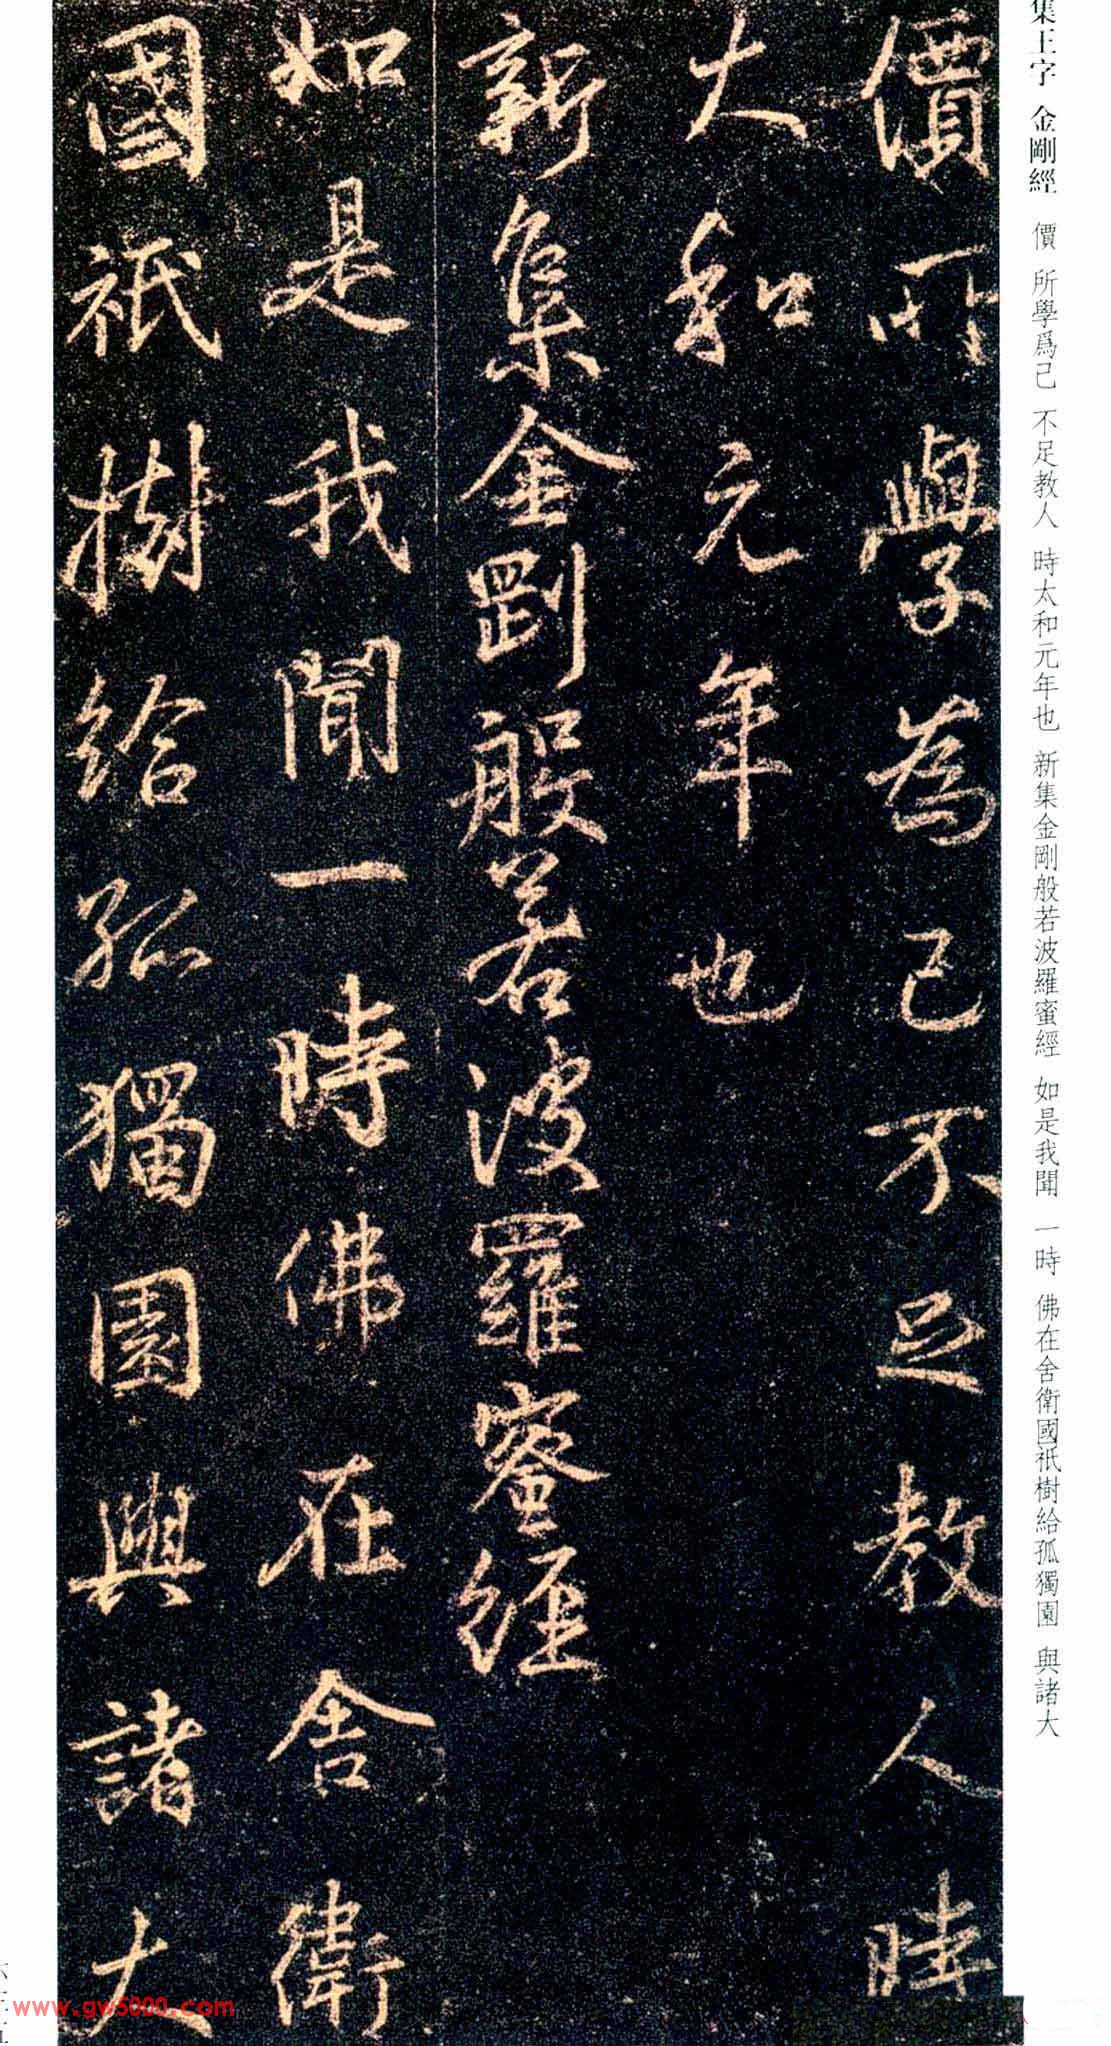 集王字 金剛經 價 所學爲己 不足教人 時太和元年也 新集金剛般若波羅蜜經 如是我聞 一時 佛在舍衛國祇樹給孤獨園 與諸大
價所學為己不足教人時
大和元年也
新集金剛般若波羅蜜經
如是我聞一時佛在舍衛
國祇樹給孤獨園與諸大
www.gw5000.com